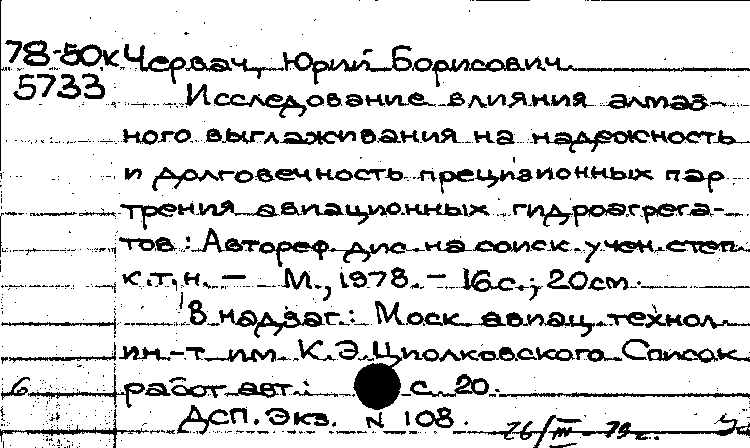 78-50к Червач, Юрий Борисович.
5733
Исследование влияния алмаз-
ного выглаживания на надежность
и долговечность прецизионных пар
трения авиационных гидроагрега-
тов: Автореф. дис. на соиск. учен. степ.
к.т.н. - М., 1978. - 16 с.; 20 см.
В надзаг.: Моск. авиац. технол.
ин.-т им. К.Э. Циолковского. Список
6 работ авт.: с. 20.
ДСП. Экз. N 108.
26/III-79 г.